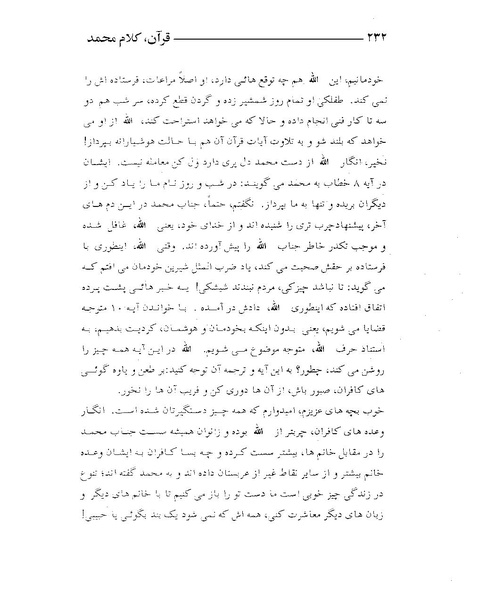 ۲۳۲ ــــــــــــــــــ قرآن، کلام محمد
خودمانیم، این الله هم چه توقع هائی دارد، او اصلاً مراعات، فرستاده اش را
نمی کند. طفلکی او تمام روز شمشیر زده و گردن قطع کرده، سر شب هم دو
سه تا کار فنی انجام داده و حالا که می خواهد استراحت کند، الله از او می
خواهد که بلند شو و به تلاوت آیات قرآن آن هم با حالت هوشیارانه بپرداز!
نخیر، انگار الله از دست محمد دل پری دارد ول کن معامله نیست. ایشان
در آیه ۸ خطاب به محمد می گویند: در شب و روز نام ما را یاد کن و از
دیگران بریده و تنها به ما بپرداز. نگفتم، حتماً، جناب محمد در این دم های
آخر، پیشنهاد چرب تری را شنیده اند و از خدای خود، یعنی الله، غافل شده
و موجب تکدر خاطر جناب الله را پیش آورده اند. وقتی الله، اینطوری با
فرستاده بر حقش صحبت می کند، یاد ضرب المثل شیرین خودمان می افتم کـه
می گوید: تا نباشد چیزکی، مردم نبندند شیشکی! یـه خبر هائـی پشت پرده
اتفاق افتاده که اینطوری الله، دادش در آمـده . با خوانـدن آیـه ۱۰ متوجـه
قضایا می شویم، یعنی بدون اینکه بخودمان و هوشمان، کردیت بدهیم، به
استناد حرف الله، متوجه موضوع می شویم. الله در این آیـه همـه چیـز را
روشن می کند، چطور؟ به این آیه و ترجمه آن توجه کنید: بر طعن و یاوه گوئـی
های کافران، صبور باش، از آن ها دوری کن و فریب آن ها را نخور.
خوب بچه های عزیزم، امیدوارم که همه چیز دستگیرتان شده است. انگـار
وعده های کافران، چربتر از الله بوده و زانوان همیشه سست جناب محمـد
را در مقابل خانم ها، بیشتر سست کرده و چه بسا کافران به ایشان وعده
خانم بیشتر و از سایر نقاط غیر از عربستان داده اند و به محمد گفته اند؛ تنوع
در زندگی چیز خوبی است ما دست تو را باز می کنیم تا با خانم های دیگر و
زبان های دیگر معاشرت کنی، همه اش که نمی شود یک بند بگوئی یا حبیبی!